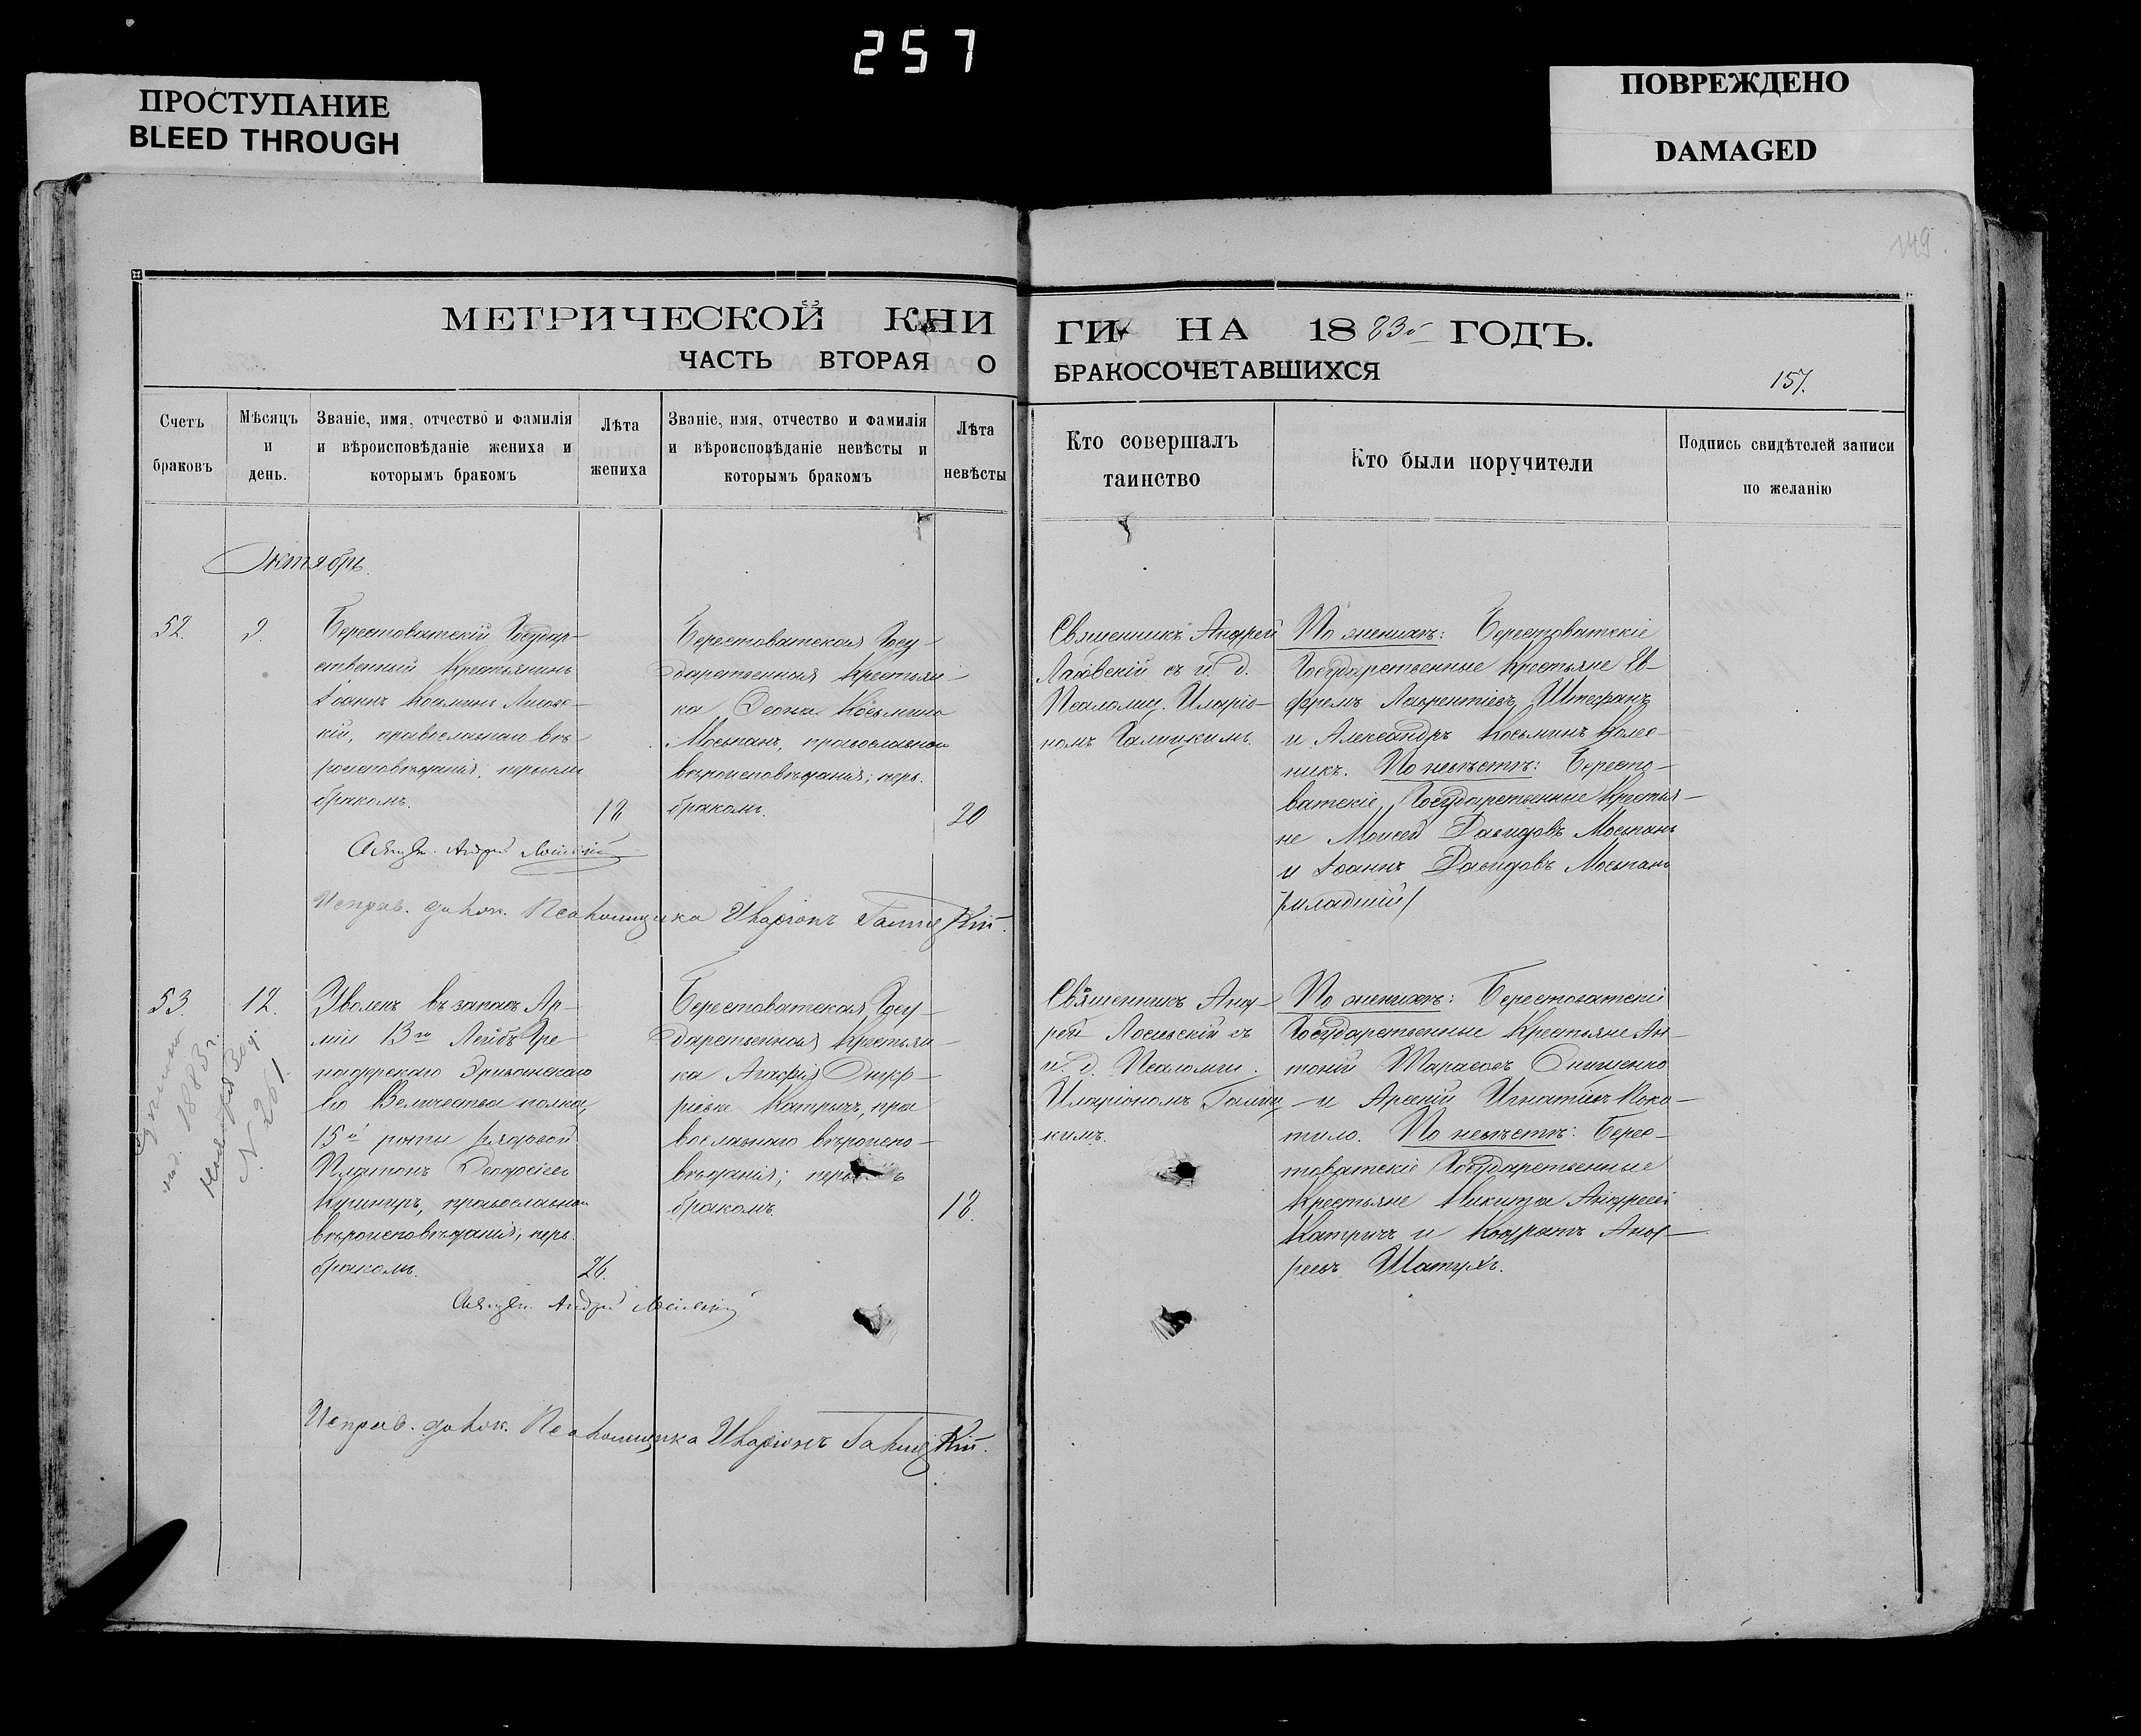 257
ПРОСТУПАНИЕ
BLEED THROUGH
ПОВРЕЖДЕНО
DAMAGED
149
МЕТРИЧЕСКОЙ КНИ
ГИ НА 1883й ГОДЪ.
ЧАСТЬ ВТОРАЯ О
БРАКОСОЧЕТАВШИХСЯ
157.
Счетъ
браковъ
Мѣсяцъ
и
день.
Званіе, имя, отчество и фамилія
и вѣроисповѣданіе жениха и
которымъ бракомъ
Лѣта
жениха
Званіе, имя, отчество и фамилія
и вѣроисповѣданіе невѣсты и
которымъ бракомъ
Лѣта
невѣсты
Кто совершалъ
таинство
Кто были поручители
Подпись свидѣтелей записи
по желанію
Октябрь.
52.
9.
Берестоватскій Государ-
ственный Крестьянинъ
Іоаннъ Косьминъ
кій, православнаго вѣ-
роисповѣданія, первымъ
бракомъ.
18
Берестоватская Госу-
дарственная Крестьян-
ка Косьмина
Мосьпанъ, православнаго
вѣроисповѣданія; перв.
бракомъ.
20
Священникъ Андрей
съ и. д.
Псаломщ. Иларіо-
номъ Галицкимъ.
По женихѣ: Берестоватскіе
Государственные Крестьяне Еѳ-
ремъ Лаврентіевъ Штефанъ
и Александръ Косьминъ Колес-
никъ. По невѣстѣ: Бересто-
ватскіе Государственные Крестья-
не Моисей Давидовъ Мосьпанъ
и Іоаннъ Давидовъ Мосьпанъ
/младшій/
Священ. Андрей
Исправ. долж. Псаломщика Иларіонъ Галицкій.
53.
12.
1883 г.
N. 261.
Уволен. въ запасъ Ар-
міи 13го Лейбъ Гре-
надерскаго Эриванскаго
Его Величества полка,
15й роты рядовой
Платонъ
Кушниръ, православнаго
вѣроисповѣданія, перв.
бракомъ.
26.
Берестоватская Госу-
дарственная Крестьян-
ка Агафія Онуф-
ріева Катричъ, пра
вославнаго вѣроиспо-
вѣданія; первымъ
бракомъ.
18.
Священникъ Анд-
рей съ
и. д. Псаломщ.
Иларіономъ Галиц-
кимъ.
По женихѣ: Берестоватскіе
Государственные Крестьяне Ан-
тоній Тарасовъ Онищенко
и Арсеній Игнатіевъ Коко-
тило. По невѣстѣ: Берес-
товатскіе Государственные
Крестьяне Никита Андреевъ
Катричъ и Кондратъ Анд-
реевъ
Священ. Андрей
Исправ. долж. Псаломщика Иларіонъ Галицкій.